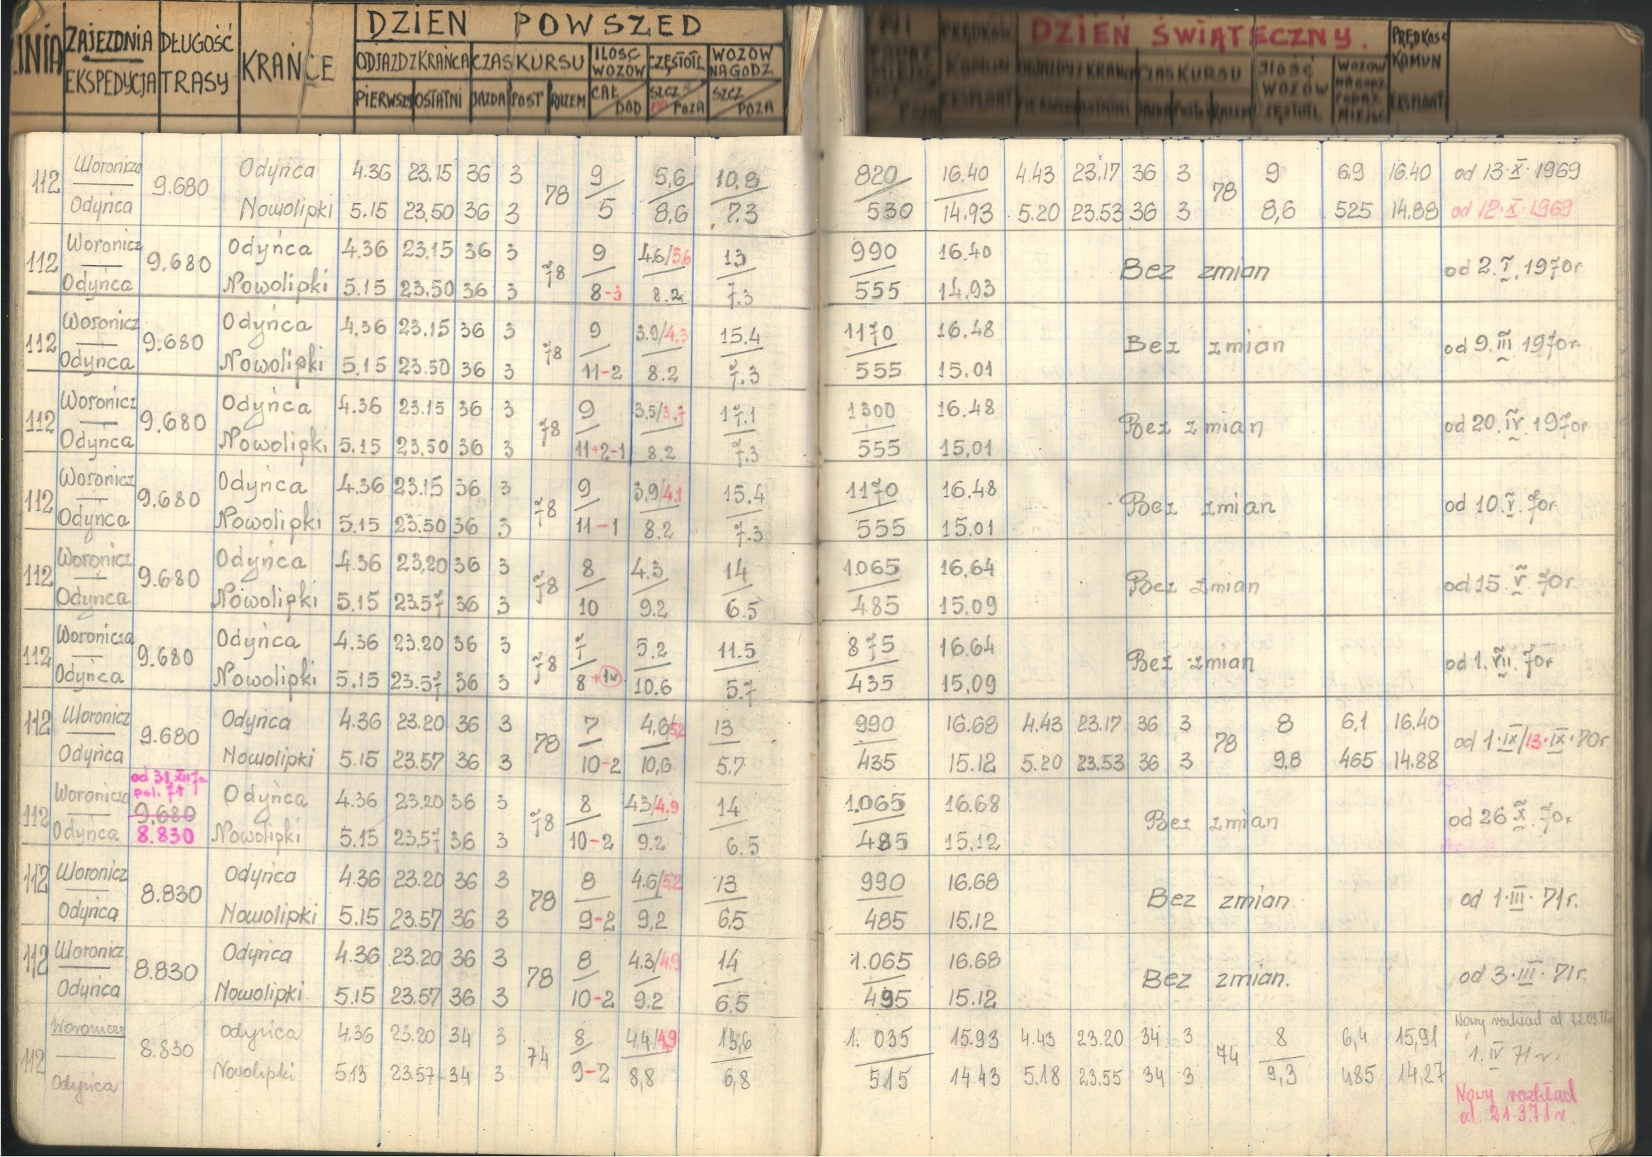 LINIA ZAJEZDNIA EKSPEDYCJA DŁUGOŚĆ TRASY KRAŃCE DZIEŃ POWSZED
ODJAZD Z KRAŃCA CZAS KURSU ILOŚĆ WOZÓW CZĘSTOTL WOZÓW NA GODZ
PIERWSZY OSTATNI JAZDA POST RAZEM CAŁ DOD SZCZ POZA SZCZ POZA
DZIEŃ ŚWIĄTECZNY. PRĘDKOŚĆ KOMUN EKSPLOAT
112 Woronicza 9.680 Odyńca 4.36 23.15 36 3 78 9 5,6 10,8 820 16.40 4.43 23.17 36 3 78 9 6,9 16.40 od 13·X·1969
Odyńca Nowolipki 5.15 23,50 36 3 5 8,6 7.3 530 14.93 5.20 23.53 36 3 8,6 525 14.88 od 12·X·1969
112 Woronicz 9.680 Odyńca 4.36 23.15 36 3 78 9 4.6/5.6 13 990 16.40 Bez zmian od 2.I.1970r
Odyńca Nowolipki 5.15 23.50 36 3 8-3 8.2 7.3 555 14.93
112 Woronicz 9.680 Odyńca 4.36 23.15 36 3 78 9 3.9/4.3 15.4 1170 16.48 Bez zmian od 9.III.1970r
Odyńca Nowolipki 5.15 23.50 36 3 11-2 8.2 7.3 555 15.01
112 Woronicz 9.680 Odyńca 4.36 23.15 36 3 78 9 3,5/3,7 17.1 1300 16.48 Bez zmian od 20.IV.1970r
Odyńca Nowolipki 5.15 23.50 36 3 11+2-1 8.2 7.3 555 15,01
112 Woronicz 9.680 Odyńca 4.36 23.15 36 3 78 9 3,9/4.1 15.4 1170 16.48 Bez zmian od 10.V.70r
Odyńca Nowolipki 5.15 23.50 36 3 11-1 8.2 7.3 555 15.01
112 Woronicz 9.680 Odyńca 4.36 23,20 36 3 78 8 4.3 14 1.065 16,64 Bez zmian od 15.V.70r
Odyńca Nowolipki 5.15 23.57 36 3 10 9.2 6.5 485 15.09
112 Woronicza 9.680 Odyńca 4.36 23.20 36 3 78 7 5.2 11.5 875 16.64 Bez zmian od 1.VII.70r
Odyńca Nowolipki 5.15 23.57 36 3 8+1w 10.6 5.7 435 15,09
112 Woronicz 9.680 Odyńca 4.36 23.20 36 3 78 7 4,6/5.2 13 990 16.68 4.43 23.17 36 3 78 8 6,1 16.40 od 1·IX/13·IX·70r
Odyńca Nowolipki 5.15 23.57 36 3 10-2 10,6 5.7 435 15.12 5.20 23.53 36 3 9,8 465 14.88
od 31.XII
pol. 71
112 Woronicza 9.680 Odyńca 4.36 23.20 36 3 78 8 4.3/4.9 14 1.065 16.68 Bez zmian od 26 X.70r
Odyńca 8.830 Nowolipki 5.15 23.57 36 3 10-2 9.2 6.5 485 15.12
112 Woronicz 8.830 Odyńca 4.36 23.20 36 3 78 8 4.6/5.2 13 990 16.68 Bez zmian. od 1·III·71r.
Odyńca Nowolipki 5.15 23.57 36 3 9-2 9,2 6,5 485 15.12
112 Woronicz 8.830 Odyńca 4.36 23.20 36 3 78 8 4.3/4.9 14 1.065 16.68 Bez zmian. od 3·III·71r.
Odyńca Nowolipki 5.15 23.57 36 3 10-2 9.2 6,5 495 15.12
Nowy rozkład od
112 Woronicza 8.830 Odyńca 4.36 23.20 34 3 74 8 4.4/4,9 13,6 1.035 15.93 4.43 23.20 34 3 74 8 6,4 15,91 1.IV 71r.
Odyńca Nowolipki 5.13 23.57 34 3 9-2 8,8 6,8 515 14.43 5.18 23.55 34 3 9,3 485 14,27
Nowy rozkład
od. 21.3.71r.